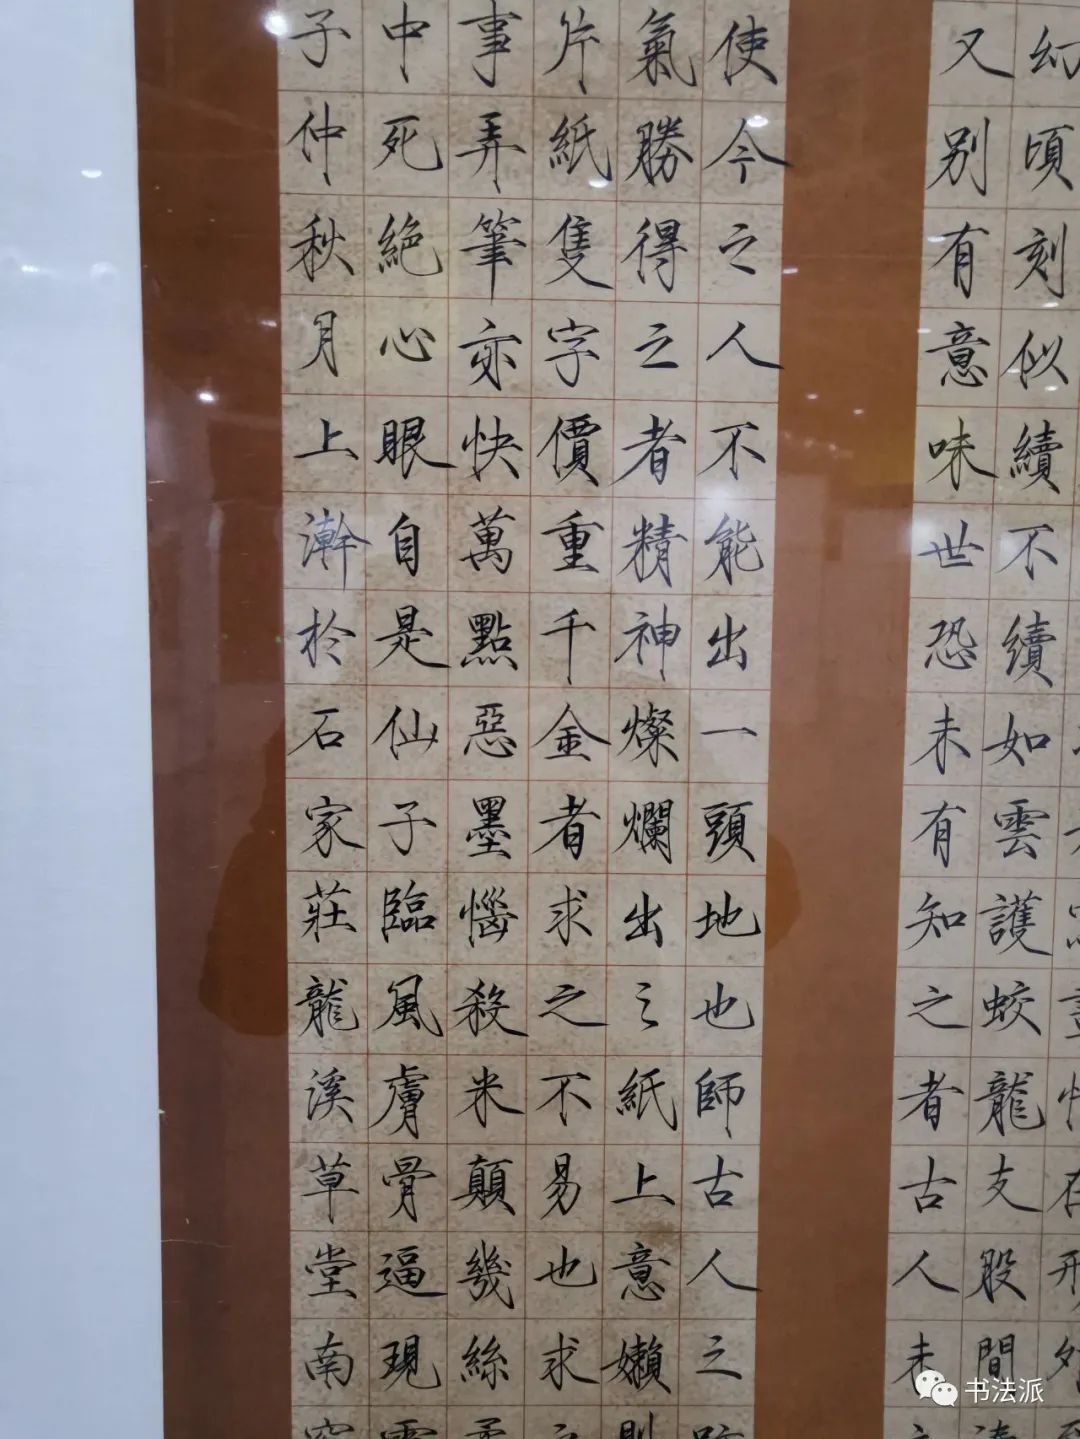 幻頃刻似續不續如雲護蛟龍支股間
又别有意味世恐未有知之者古人未
使今之人不能出一頭地也師古人之
氣勝得之者精神燦爛出之紙上意嬾則
片紙隻字價重千金者求之不易也求之
事弄筆亦快萬點惡墨惱殺米顛幾絲柔
中死絕心眼自是仙子臨風膚骨逼現
子仲秋月上澣於石家莊龍溪草堂南窗
书法派